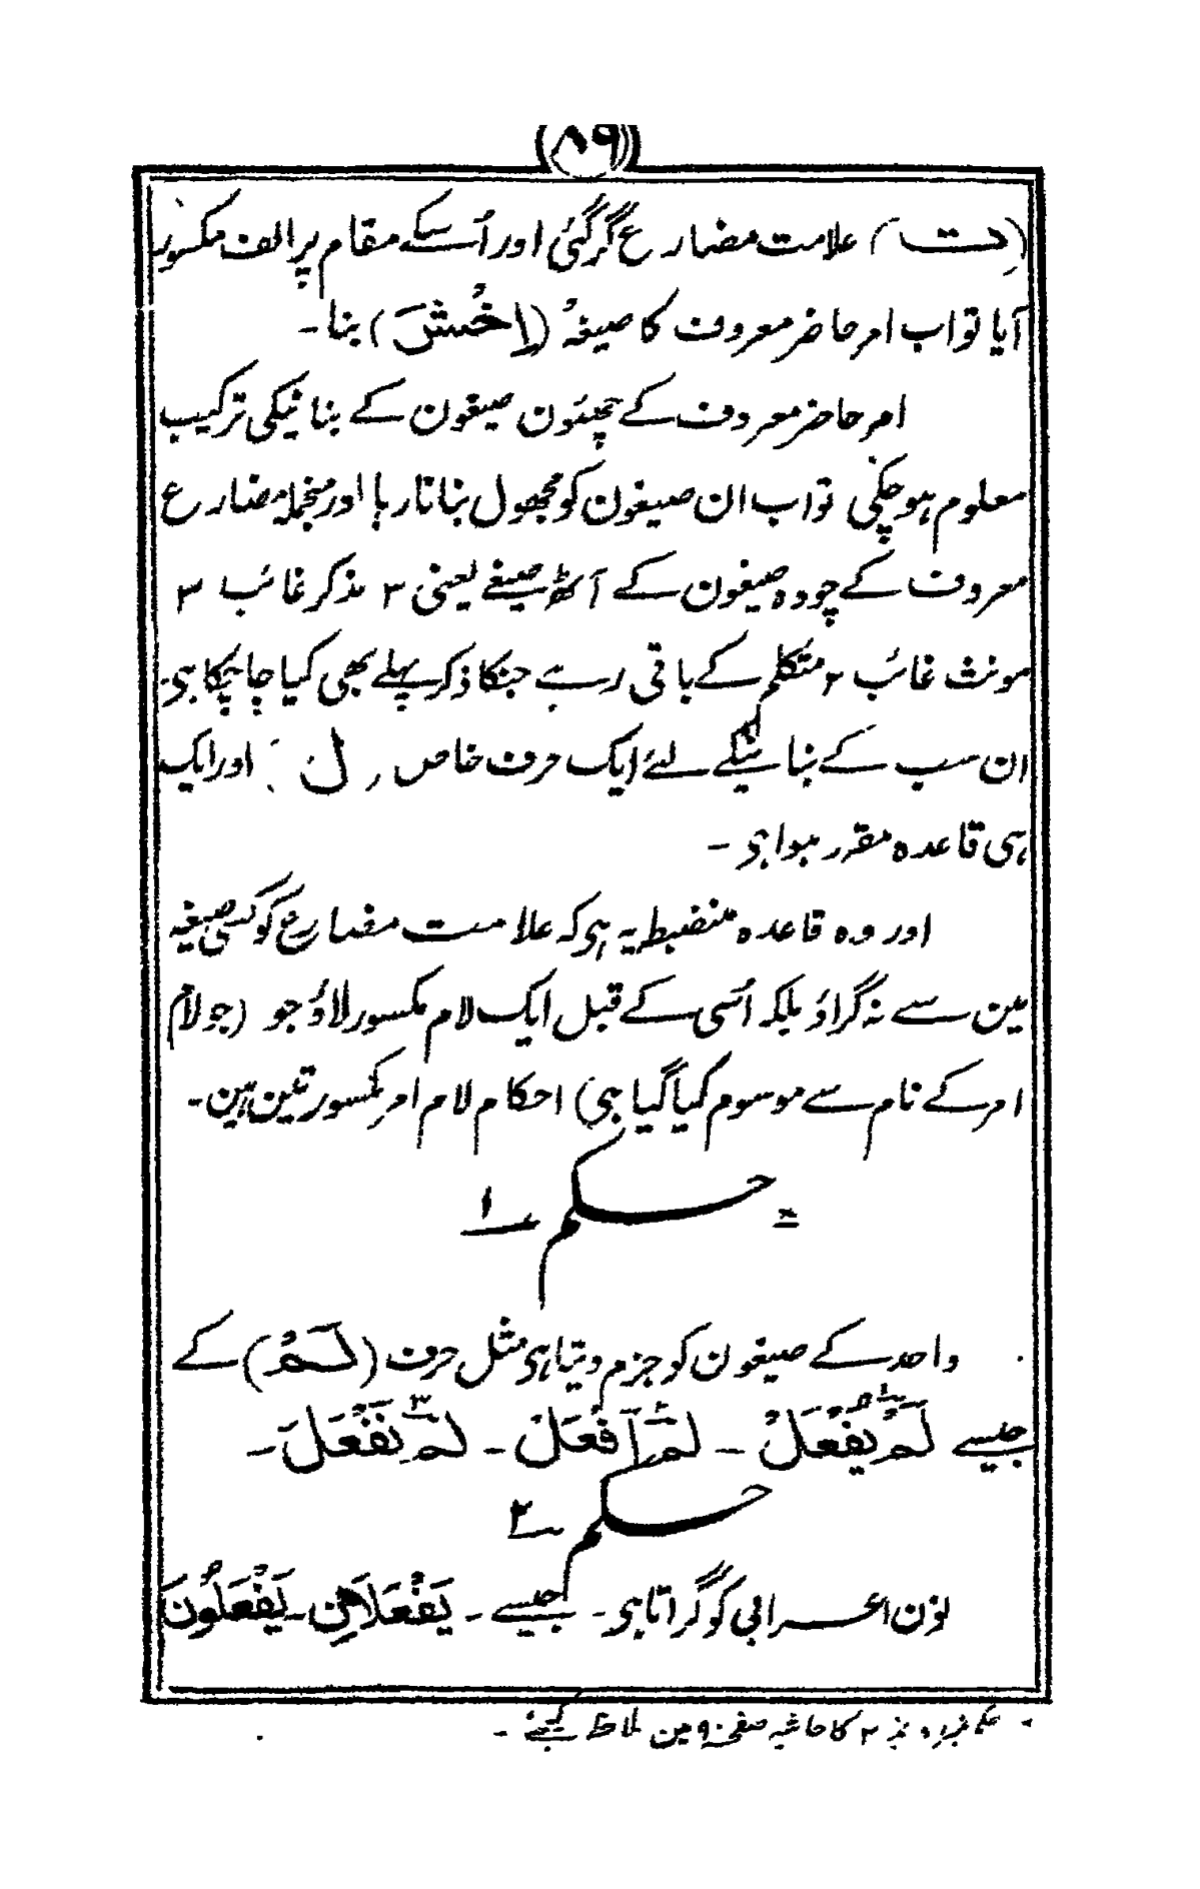 (۸۹)
(ت) علامت مضارع گرگئی اور اُسکے مقام پر الف مکسور
آیا تو اب امر حاضر معروف کا صیغہ (اِخْشَ) بنا۔
امر حاضر معروف کے چھئون صیغون کے بنانیکی ترکیب
معلوم ہوچکی تو اب ان صیغون کو مجھول بنانا رہا اور منجملہ مضارع
معروف کے چودہ صیغون کے آٹھ صیغے یعنی ۳ مذکر غائب ۳
مونث غائب ۲ متکلم کے باقی رہے جنکا ذکر پہلے بھی کیا جاچکا ہی۔
ان سب کے بنانیکے لئے ایک حرف خاص (لِ) اور ایک
ہی قاعدہ مقرر ہوا ہی۔
اور وہ قاعدہ منضبط یہ ہی کہ علامت مضارع کو کسی صیغہ
مین سے نہ گراؤ بلکہ اُسی کے قبل ایک لام مکسور لاؤ جو (جو لام
امر کے نام سے موسوم کیا گیا ہی) احکام لام امر مکسور تین ہین۔
حکم ۱
واحد کے صیغون کو جزم دیتا ہی مثل حرف (لَمْ) کے
جیسے لَمْ یَفْعَلْ ۔ لَمْ اَفْعَلْ ۔ لَمْ نَفْعَلْ ۔
حکم ۲
نون اعرابی کو گراتا ہی۔ جیسے ۔ یَفْعَلَانِ ۔ یَفْعَلُوْنَ
نمبر ۲ کا حاشیہ صفحہ ۹۰ مین ملاحظہ کیجئے ۔